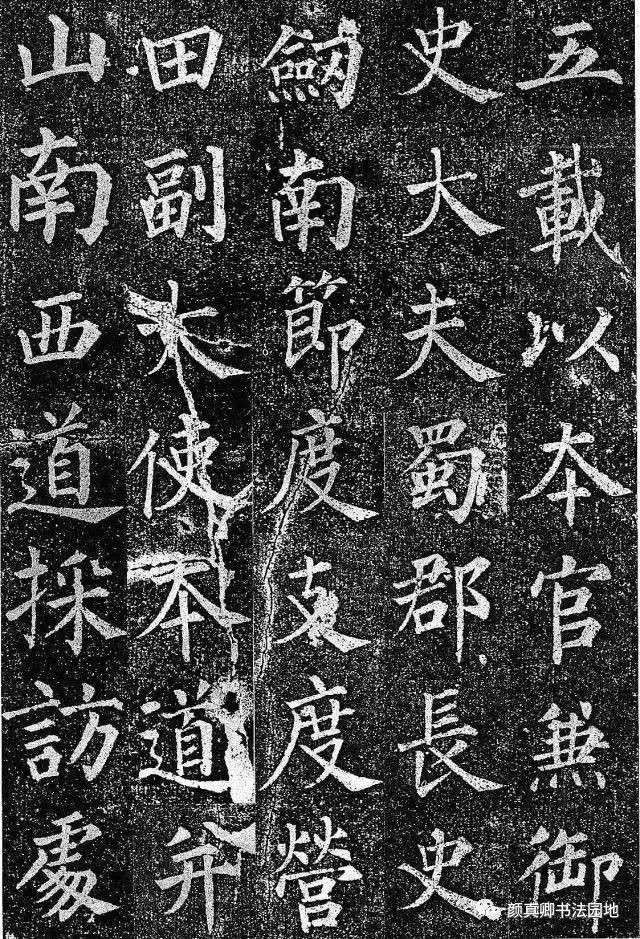 五載以本官兼御
史大夫蜀郡長史
劒南節度支度營
田副大使本道并
山南西道採訪處
颜真卿书法园地